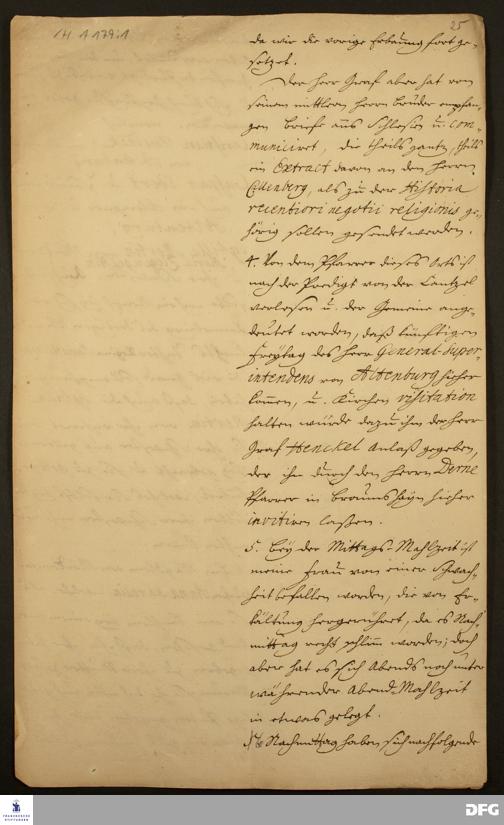 H 1 179:1
25
da wir die vorige Erbauung fortge-
setzet.
Der Herr Graf aber hat von
seinem mittlern Herrn Bruder empfan-
gen Briefe aus Schlesien u. com-
municiret, die theils gantz, theils
ein Extract davon an den Herrn
Cellenberg, als zu der Historia
recentiori negotii religionis ge-
hörig sollen gesendet werden.
4. Von dem Pfarrer dieses Orts ist
nach der Predigt von der Cantzel
verlesen u. der Gemeine ange-
deutet worden, daß künftigen
Freytag des Herr General-Super-
intendens von Altenburg hieher
kommen, u. Kirchen visitation
halten würde dazu ihm der Herr
Graf Henckel Anlaß gegeben,
der ihn durch den Herrn Derne
Pfarrer in Braunshayn hieher
invitiren laßen.
5. Bey der Mittags-Mahlzeit ist
meine Frau von einer Schwach-
heit befallen worden, die von Er-
kältung hergerühret, da es Nach-
mittag recht schlimm worden; doch
aber hat es sich Abends noch unter
währender Abend-Mahlzeit
in etwas gelegt.
Nachmittag haben sich nachfolgende
FRANCKESCHE
STIFTUNGEN
DFG